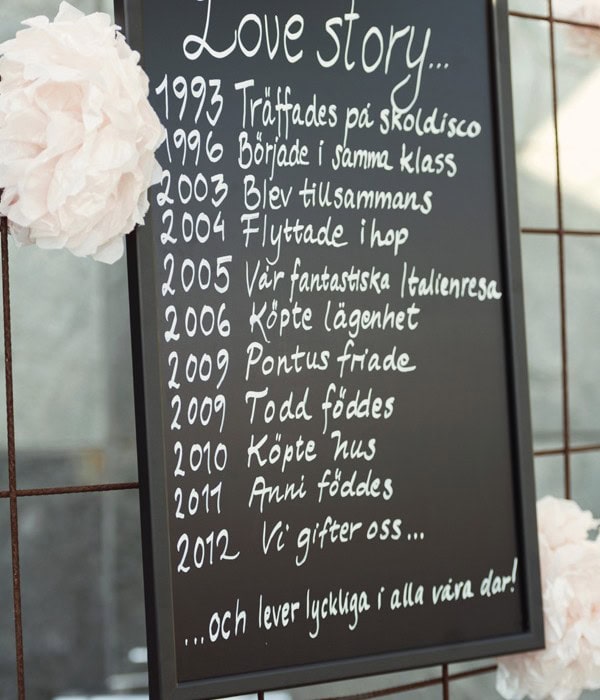 Love story...
1993 Träffades på skoldisco
1996 Började i samma klass
2003 Blev tillsammans
2004 Flyttade ihop
2005 Vår fantastiska Italienresa
2006 Köpte lägenhet
2009 Pontus friade
2009 Todd föddes
2010 Köpte hus
2011 Anni föddes
2012 Vi gifter oss...
...och lever lyckliga i alla våra dar!